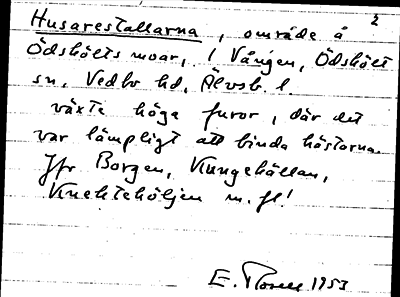 2
Husarestallarna, område å
Ödskölts moar, i Vången, Ödskölt
sn, Vedbo hd, Älvsb. l.
växte höga furor, där det
var lämpligt att binda hästarna.
Jfr Borgen, Kungehällan,
Knektehöljen m. fl!
E. 1953